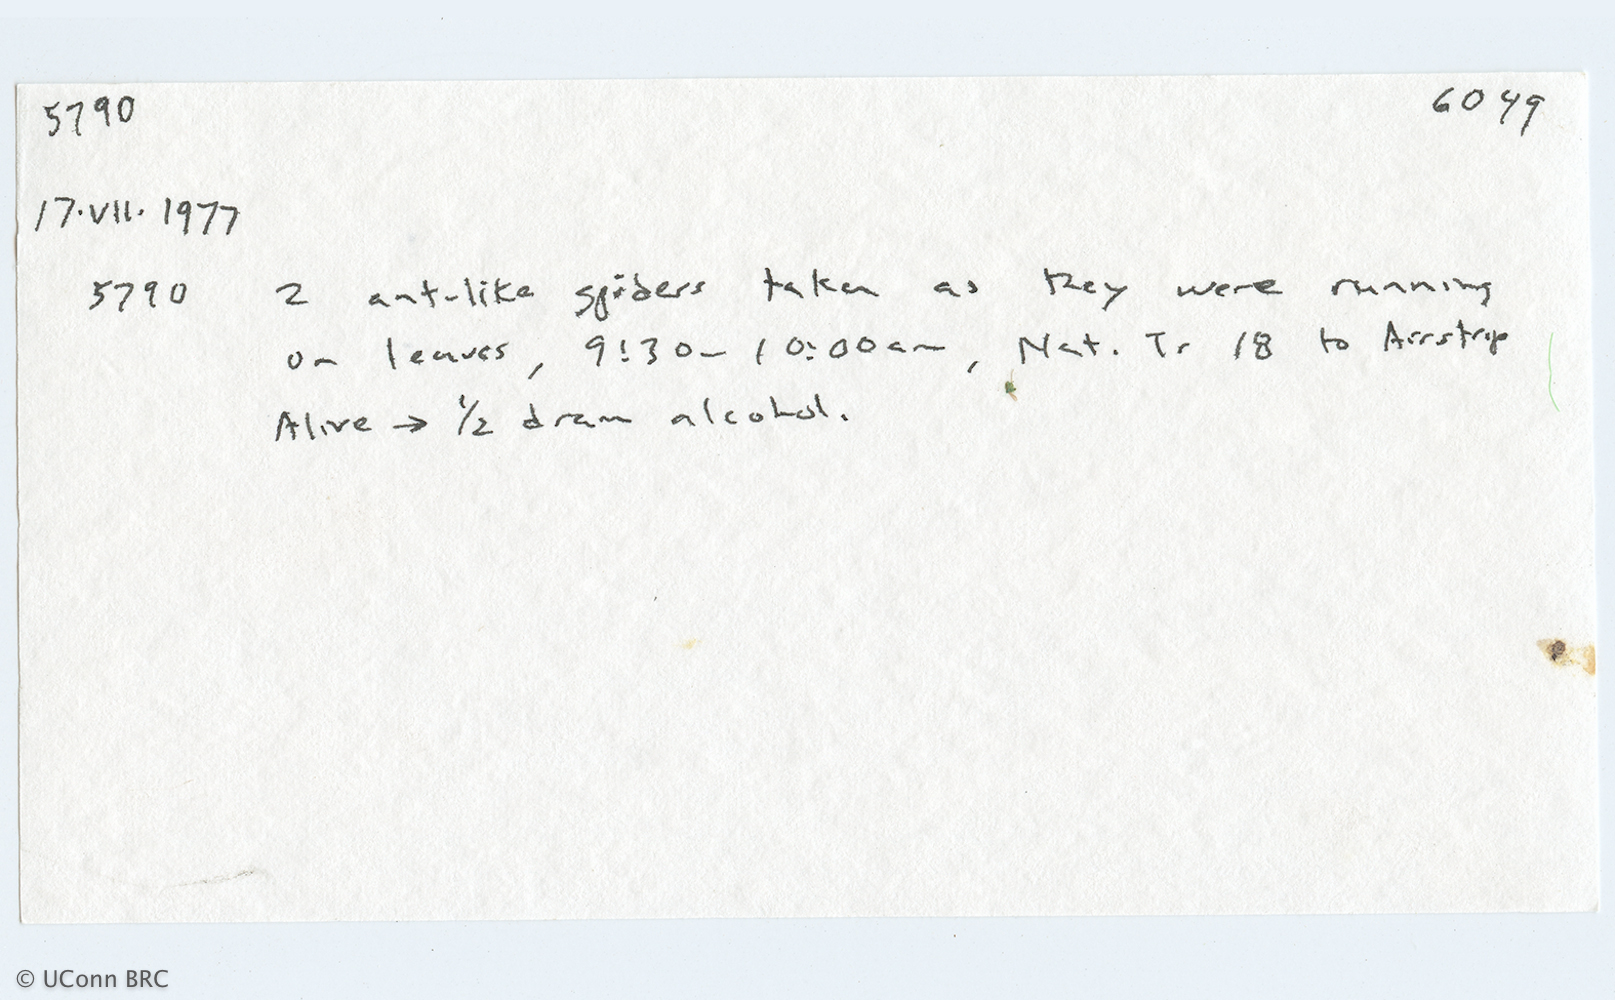 5790 6049
17.VII.1977
5790 2 ant-like spiders taken as they were running
on leaves, 9:30-10:00am, Nat. Tr 18 to Airstrip
Alive → 1/2 dram alcohol.
© UConn BRC